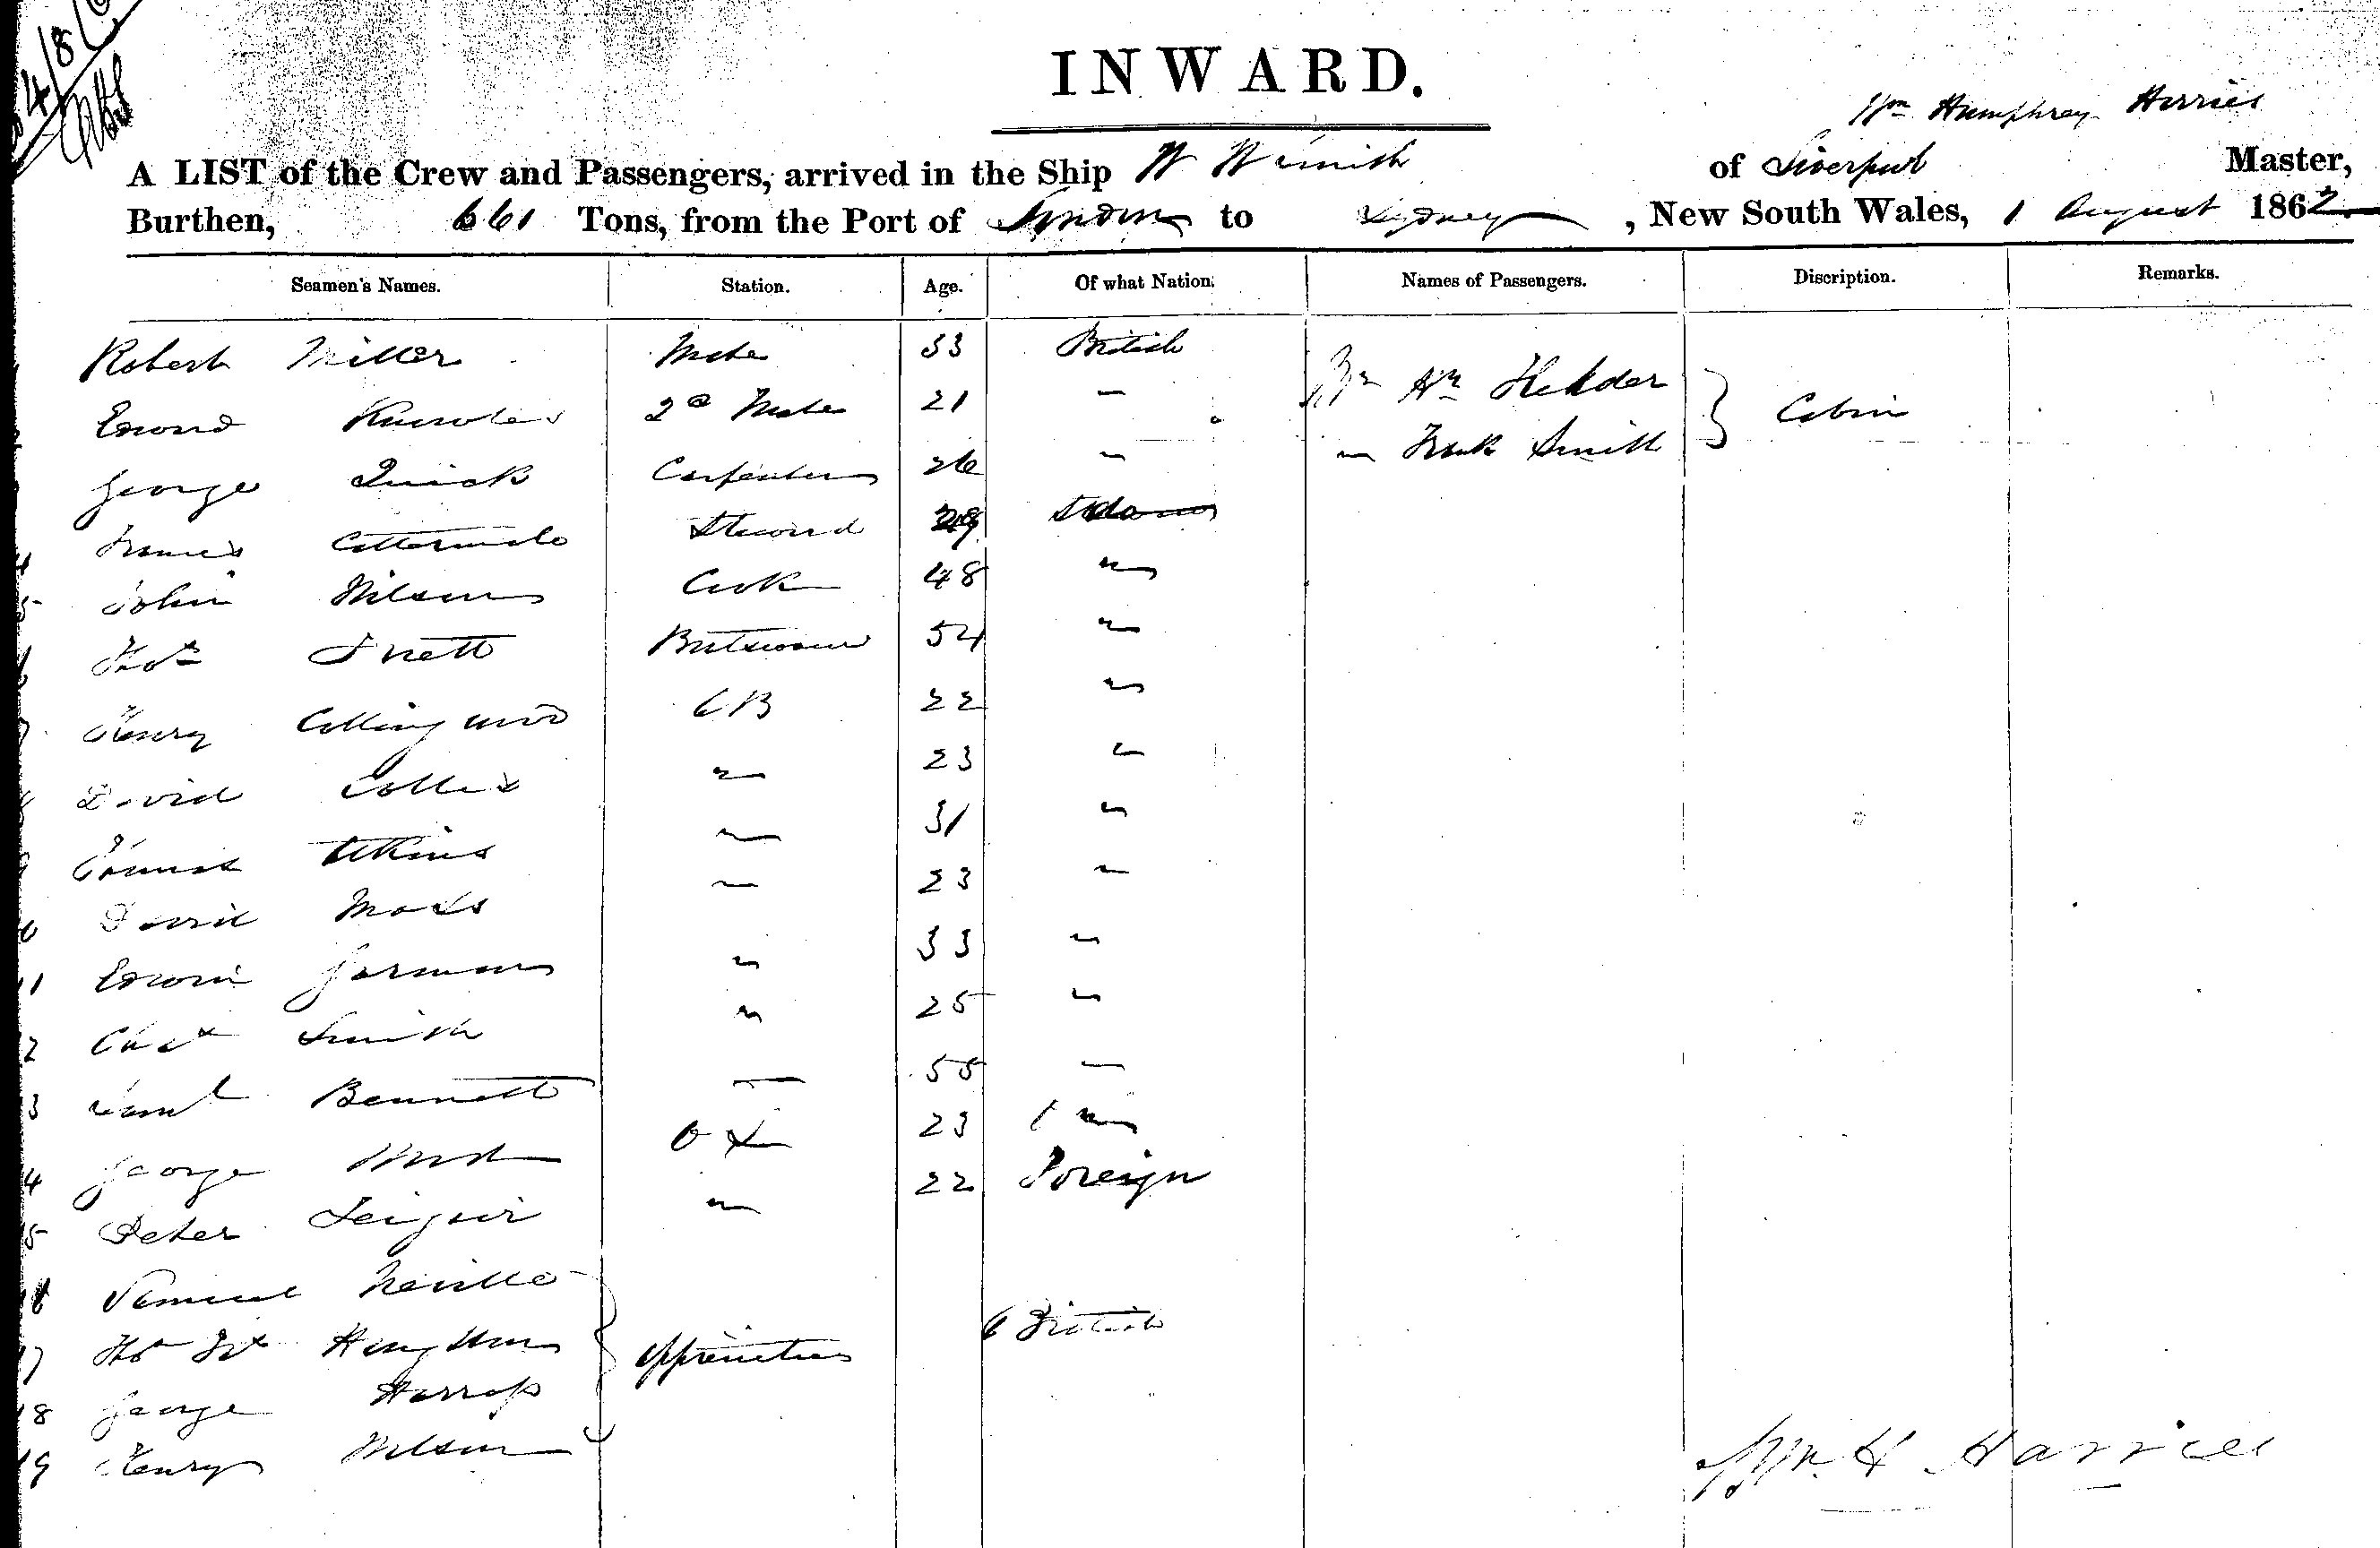 4/8/6
INWARD.
Wm Humphrey Harries
A LIST of the Crew and Passengers, arrived in the Ship W of Liverpool Master,
Burthen, 661 Tons, from the Port of London to Sydney, New South Wales, 1 August 1862
Seamen's Names. Station. Age. Of what Nation. Names of Passengers. Discription. Remarks.
Robert Miller Mate 33 British
Mr Wm
Edward Knowles 2d Mate 21 " Cabin
George Quick Carpenter 26 " " Frank Smith
4 Francis Cattermole Steward
5 John Wilson Cook 48 "
6 Boatswain 54 "
7 Henry Collingwood AB 22 "
David Collis " 23 "
9 Atkins " 31 "
David Moss " 23 "
11 Edwin Jarman " 33 "
12 Chas Smith " 25 "
13 Saml Bennett " 55 "
14 George OS 23 "
15 Peter " 22 Foreign
16 Samuel Neville
17 Apprentices British
18 George Harrap
19 Henry Wilson
Wm H Harries